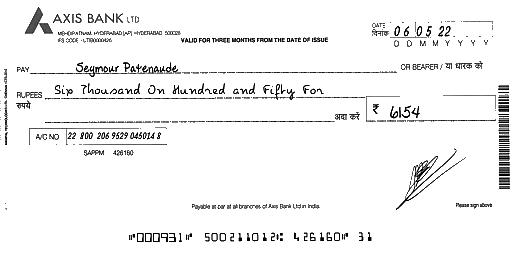 AXIS BANK LTD
MEHDIPATNAM, HYDERABAD [AP] HYDERABAD 500028
IFS CODE - UTIB0000426
VALID FOR THREE MONTHS FROM THE DATE OF ISSUE
DATE दिनांक 06 05 22
D D M M Y Y Y Y
PAY Seymour Patenaude OR BEARER / या धारक को
RUPEES रुपये Six Thousand On Hundred and Fifty For
अदा करें ₹ 6154
A/C NO 22 800 206 9529 0450148
SAPPM 426160
Payable at par at all branches of Axis Bank Ltd in India.
Please sign above
⑈000931⑈ 500211012⑆ 426160⑈ 31